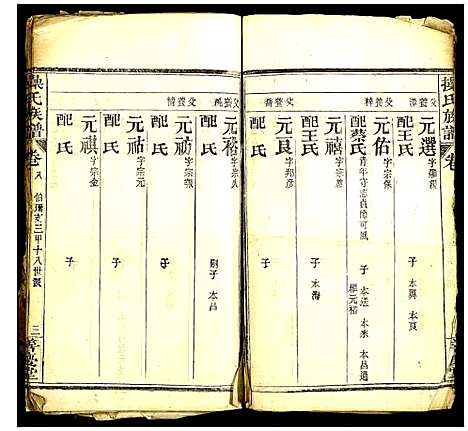 操氏族譜
卷
父養澤
元選 字彝穎
配王氏
子 本興 本良
父養粹
元佑 字宗保
配蔡氏 青年守志貞節可風
子 本法 本來 本昌過
繼元裕
元禧 字宗
配王氏
子 本海
父養
元良 字邦彥
配氏
子
父養
元裕 字宗
配氏
嗣子 本昌
父養情
元祊 字宗
配氏
子
元祜 字宗元
配氏
子
元祺 字宗金
配氏
子
操氏族譜
卷八
伯 支三甲十八世派
三
善慶堂